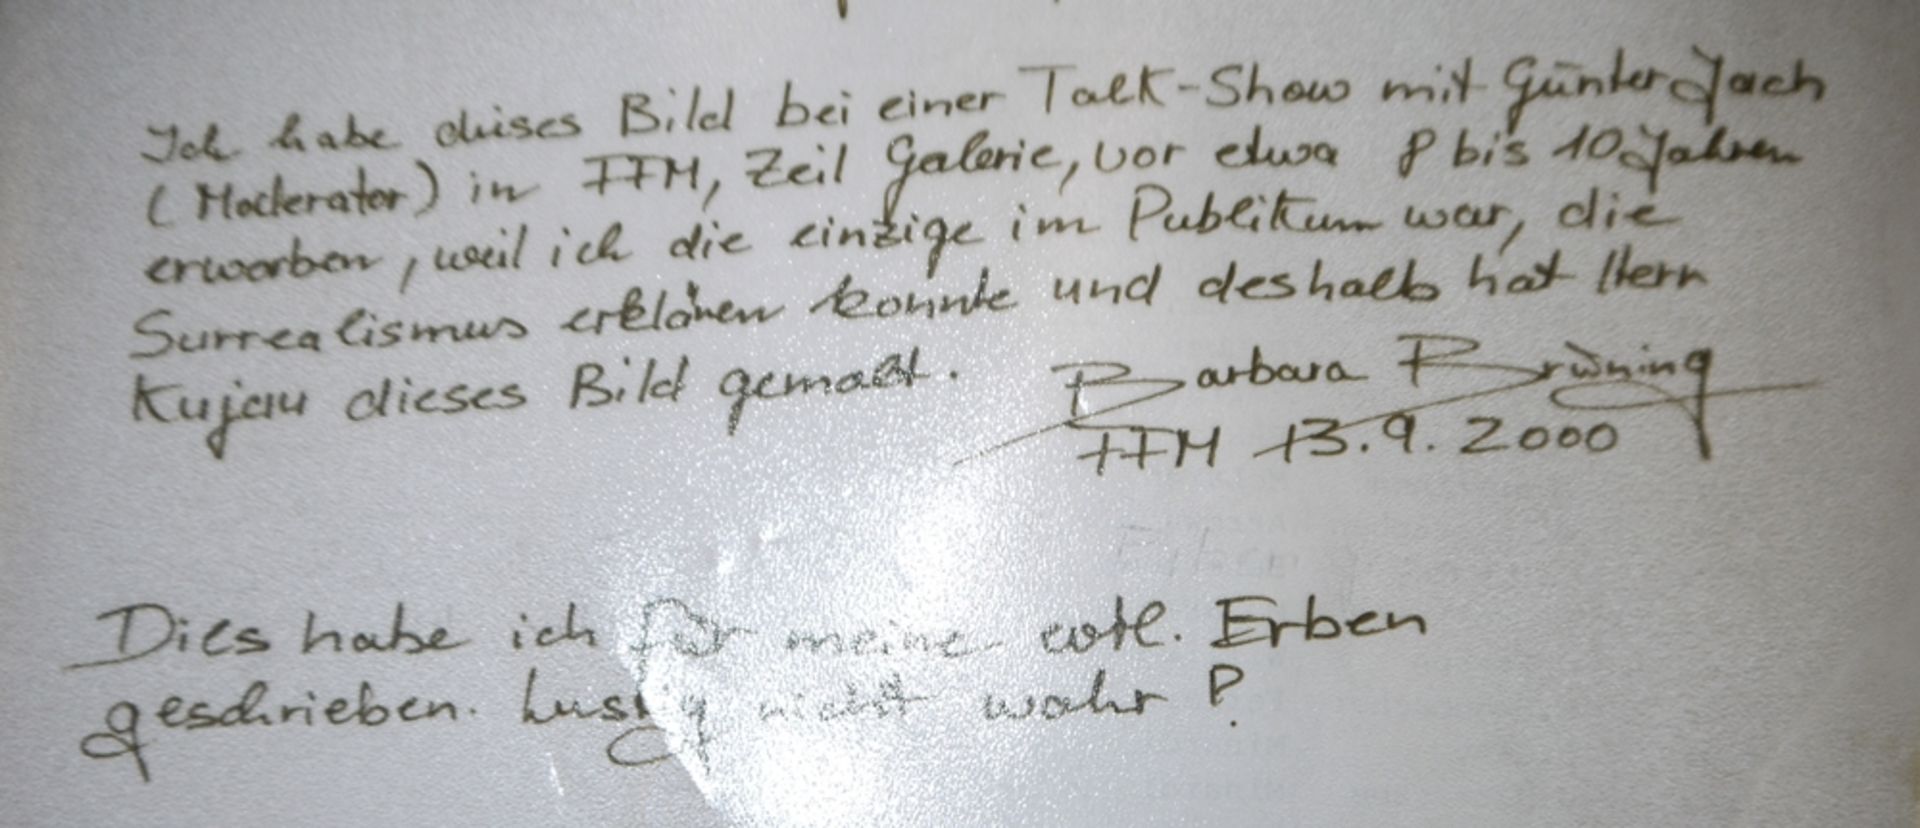 Ich habe dieses Bild bei einer Talk-Show mit Günter Jach
(Moderator) in FFM, Zeil Galerie, vor etwa 8 bis 10 Jahren
erworben, weil ich die einzige im Publikum war, die
Surrealismus erklären konnte und deshalb hat Herr
Kujau dieses Bild gemalt. Barbara Brüning
FFM 13.9.2000
Dies habe ich für meine evtl. Erben
geschrieben. Lustig nicht wahr?